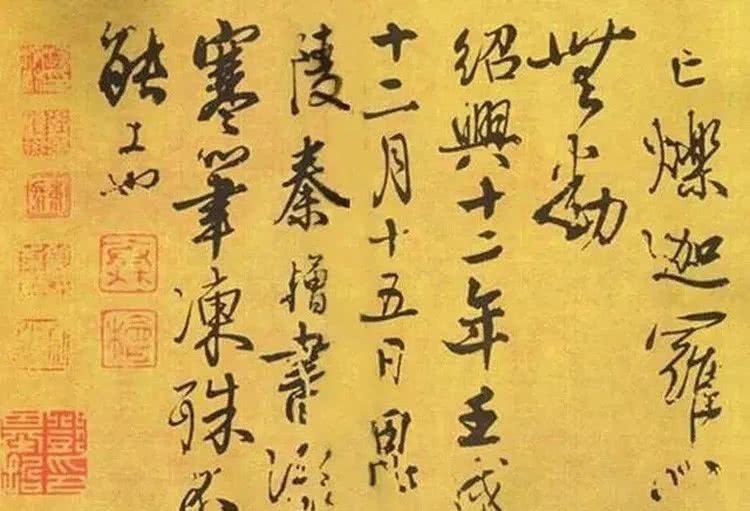 亡爍迦羅心
無動
紹興十二年壬戌
十二月十五日毗
陵秦檜書深
寒筆凍殊不
能工也